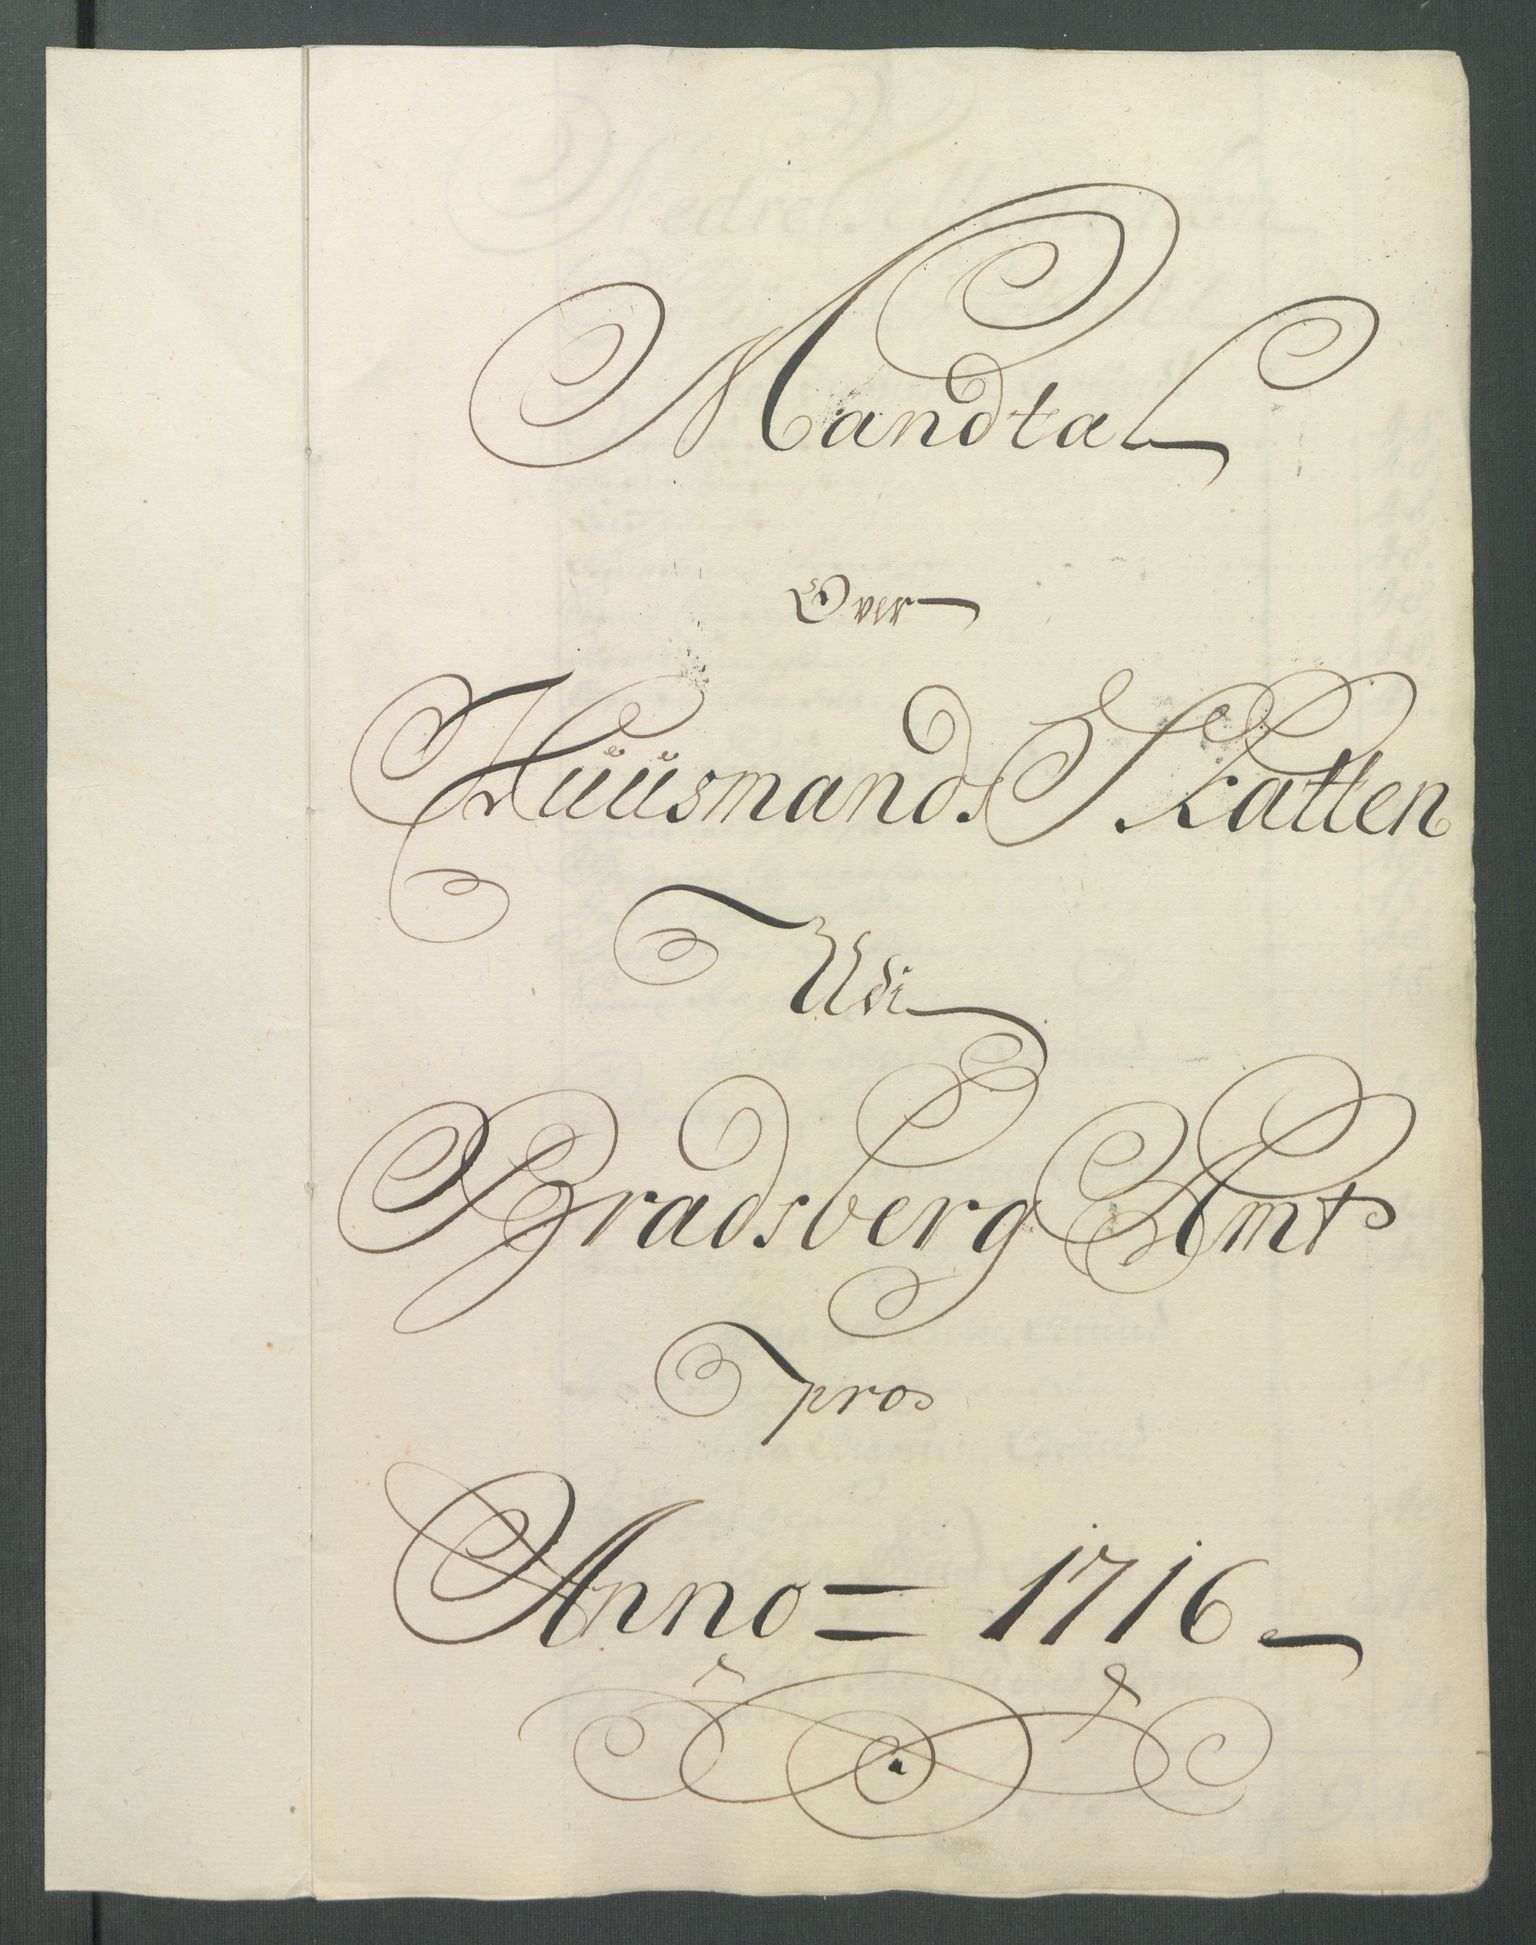 Mandtal
Over
Huusmands Skatten
Udi
Bradsberg Amt
pro
Anno = 1716